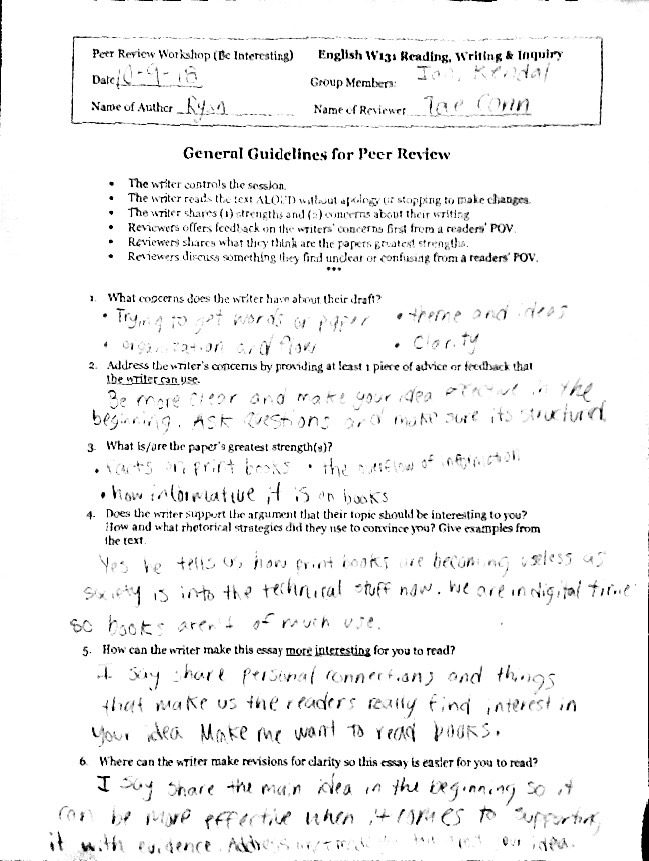 Peer Review Workshop (Be Interesting) English W131 Reading, Writing & Inquiry
Date 10-9-18 Group Members: Ian, Kendal
Name of Author Ryan Name of Reviewer Tae Conn
General Guidelines for Peer Review
• The writer controls the session.
• The writer reads the text ALOUD without apology or stopping to make changes.
• The writer shares (1) strengths and (2) concerns about their writing
• Reviewers offers feedback on the writers' concerns first from a readers' POV.
• Reviewers shares what they think are the papers greatest strengths.
• Reviewers discuss something they find unclear or confusing from a readers' POV.
***
1. What concerns does the writer have about their draft?
• Trying to get words on paper • theme and ideas
• organization and flow • Clarity
2. Address the writer's concerns by providing at least 1 piece of advice or feedback that
the writer can use.
Be more clear and make your idea effective in the
beginning. Ask Questions and make sure its structured.
3. What is/are the paper's greatest strength(s)?
• Facts on print books • the overflow of information
• how informative it is on books
4. Does the writer support the argument that their topic should be interesting to you?
How and what rhetorical strategies did they use to convince you? Give examples from
the text.
Yes he tells us how print books are becoming useless as
society is into the technical stuff now. We are in digital time
so books aren't of much use.
5. How can the writer make this essay more interesting for you to read?
I say share personal connections and things
that make us the readers really find interest in
your idea Make me want to read books.
6. Where can the writer make revisions for clarity so this essay is easier for you to read?
I say share the main idea in the beginning so it
can be more effective when it comes to supporting
it with evidence. our idea.